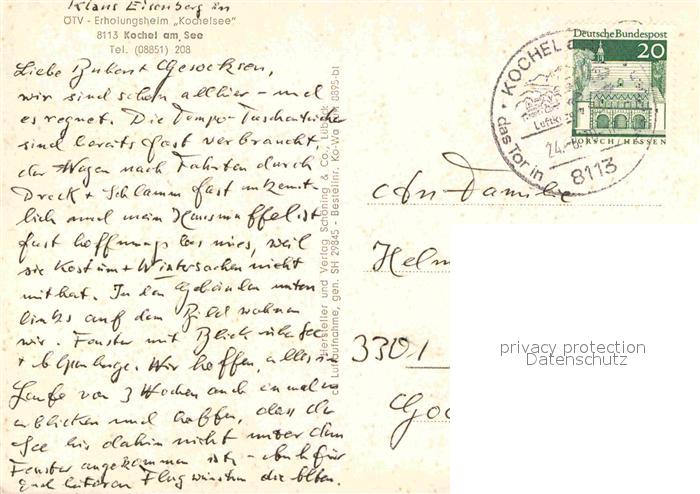 Klaus Eisenberg in
ÖTV - Erholungsheim „Kochelsee"
8113 Kochel am See
Tel. (08851) 208
Liebe
wir sind schon allhier – und
es regnet. Die Tempo-Taschentücher
sind bereits fast verbraucht,
der Wagen nach Fahrten durch
Dreck + Schlamm fast unkennt-
lich und mein
fast hoffnungslos mies, weil
sie Kostüm + Wintersachen nicht
mithat. In den Gebäuden unten
links auf dem Bild wohnen
wir. Fenster mit Blick über See
+ Wir hoffen, alles im
Laufe von 3 Wochen auch einmal zu
erblicken und hoffen, dass der
See bis dahin nicht unter dem
Fenster angekommen ist,
Euch
Hersteller und Verlag Schöning & Co., Lübeck
Luftaufnahme, gen. SH 29845 - Bestellnr. Ko-Wa 8895-bl
KOCHEL a
Luftkur
das Tor in
24.
8113
Deutsche Bundespost
20
LORSCH/HESSEN
An Familie
Helm
3301
privacy protection
Datenschutz